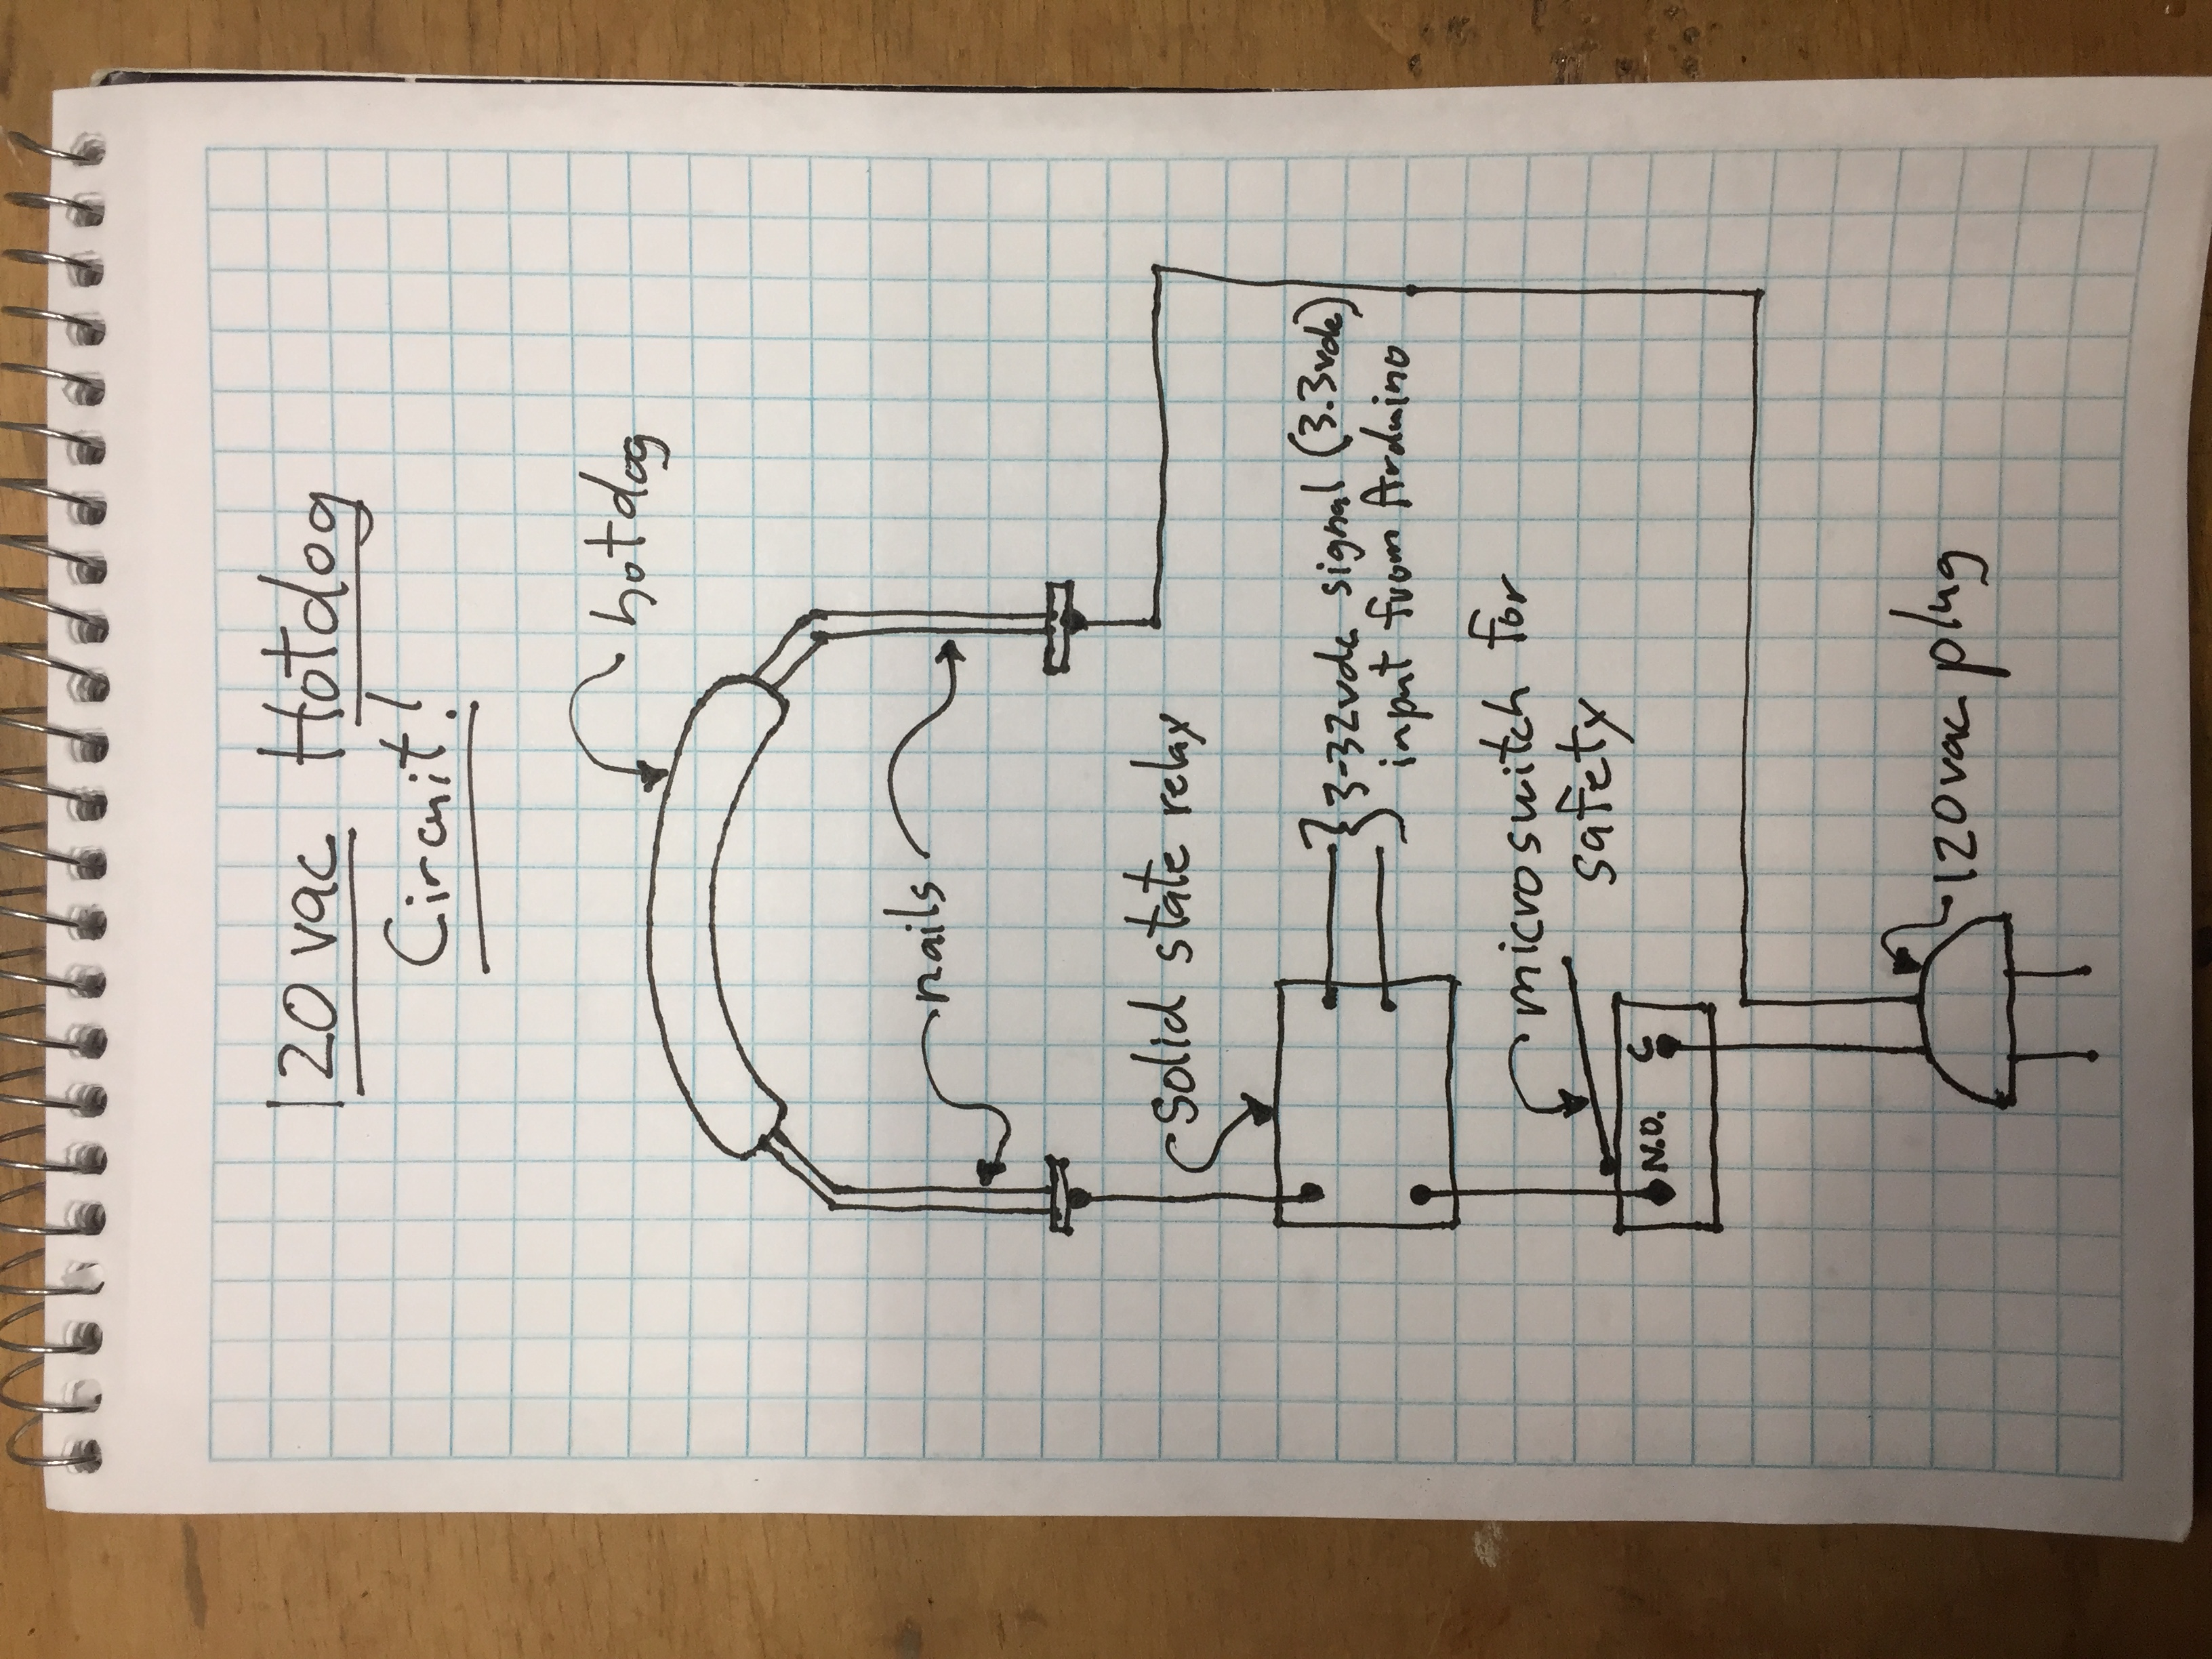 120 vac Hotdog
Circuit!
hotdog
nails
solid state relay
3-32vdc signal (3.3vdc)
input from Arduino
microswitch for
safety
N.O. C
120vac plug